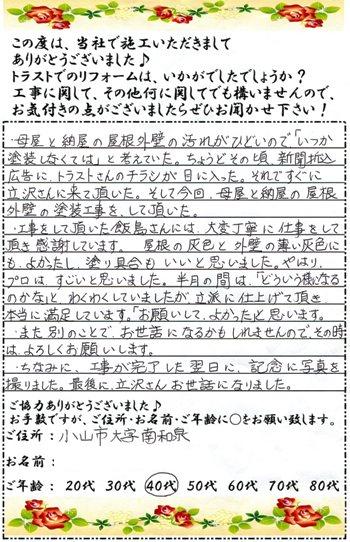 この度は、当社で施工いただきまして
ありがとうございました♪
トラストでのリフォームは、いかがでしたでしょうか？
工事に関して、その他何に関してでも構いませんので、
お気付きの点がございましたらぜひお聞かせ下さい！
・母屋と納屋の屋根外壁の汚れがひどいので「いつか
塗装しなくては」と考えていた。ちょうどその頃、新聞折込
広告に、トラストさんのチラシが目に入った。それですぐに
立沢さんに来て頂いた。そして今回、母屋と納屋の屋根
外壁の塗装工事を、して頂いた。
・工事をして頂いた飯島さんには、大変丁寧に仕事をして
頂き感謝しています。 屋根の灰色と外壁の薄い灰色に
も、よかったし、塗り具合もいいと思いました。やはり、
プロは、すごいと思いました。半月の間は、「どういう様になる
のかな」と、わくわくしていましたが、立派に仕上げて頂き
本当に満足しています。「お願いして、よかった」と思います。
・また別のことで、お世話になるかもしれませんので、その時
は、よろしくお願いします。
・ちなみに、工事が完了した翌日に、記念に写真を
撮りました。最後に、立沢さんお世話になりました。
ご協力ありがとうございました♪
お手数ですが、ご住所・お名前・ご年齢に○をお願い致します。
ご住所：小山市大字南和泉
お名前：
ご年齢： 20代 30代 40代 50代 60代 70代 80代